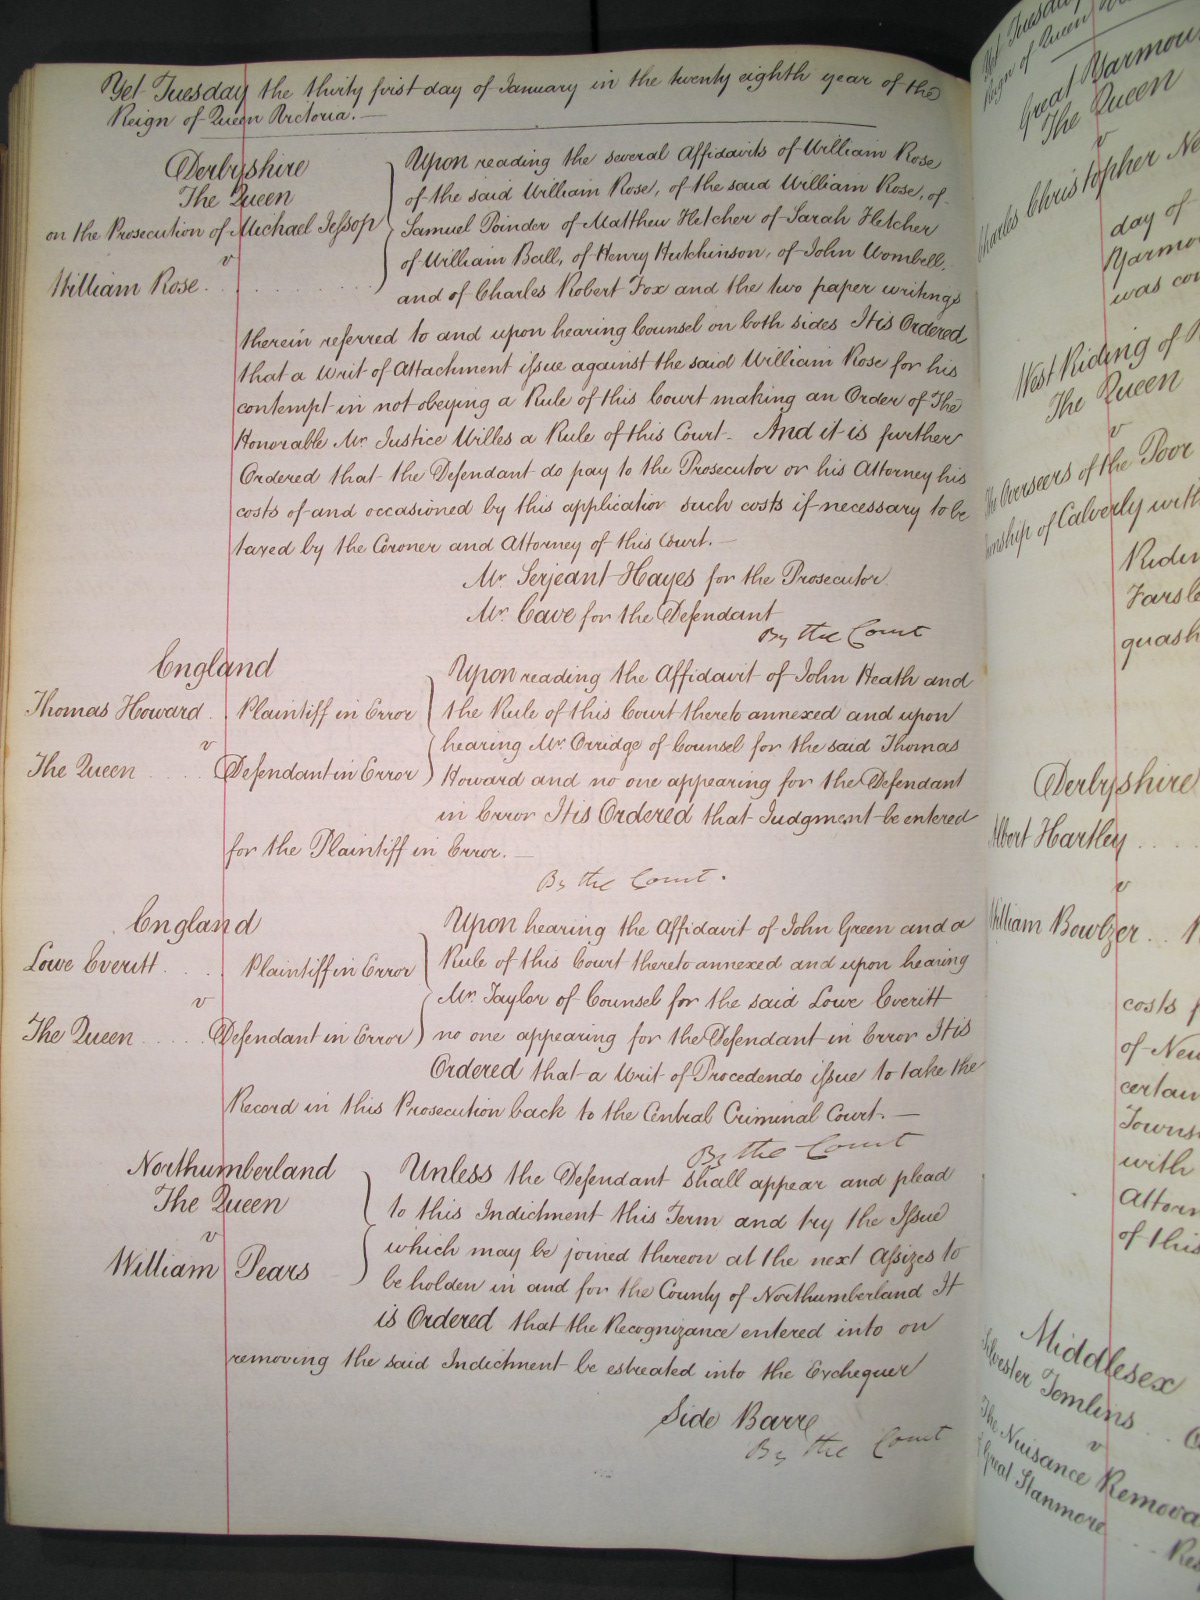 Yet Tuesday the thirty first day of January in the twenty eighth year of the
Reign of Queen Victoria.—
Derbyshire
The Queen
on the Prosecution of Michael Jessop
v
William Rose.
Upon reading the several Affidavits of William Rose
of the said William Rose, of the said William Rose, of
Samuel Poinder of Matthew Fletcher of Sarah Fletcher
of William Ball, of Henry Hutchinson, of John Wombell,
and of Charles Robert Fox and the two paper writings
therein referred to and upon hearing Counsel on both sides It is Ordered
that a Writ of Attachment issue against the said William Rose for his
contempt in not obeying a Rule of this Court making an Order of The
Honorable Mr. Justice Willes a Rule of this Court - And it is further
Ordered that the Defendant do pay to the Prosecutor or his Attorney his
costs of and occasioned by this application such costs if necessary to be
taxed by the Coroner and Attorney of this Court.—
Mr. Serjeant Hayes for the Prosecutor
Mr. Cave for the Defendant
By the Court
England
Thomas Howard . . Plaintiff in Error
v
The Queen . . . . Defendant in Error
Upon reading the Affidavit of John Heath and
the Rule of this Court thereto annexed and upon
hearing Mr. Orridge of Counsel for the said Thomas
Howard and no one appearing for the Defendant
in Error It is Ordered that Judgment be entered
for the Plaintiff in Error.—
By the Court.
England
Lowe Everitt . . . . Plaintiff in Error
v
The Queen . . . . Defendant in Error
Upon hearing the Affidavit of John Green and a
Rule of this Court thereto annexed and upon hearing
Mr. Taylor of Counsel for the said Lowe Everitt
no one appearing for the Defendant in Error It is
Ordered that a Writ of Procedendo issue to take the
Record in this Prosecution back to the Central Criminal Court.—
By the Court
Northumberland
The Queen
v
William Pears
Unless the Defendant shall appear and plead
to this Indictment this Term and try the Issue
which may be joined thereon at the next Assizes to
be holden in and for the County of Northumberland It
is Ordered that the Recognizance entered into on
removing the said Indictment be estreated into the Exchequer
Side Barre
By the Court
Yet Tuesday
Reign of Queen
Great Yarmou
The Queen
v
Charles Christopher Ne
day of
Yarmo
was co
West Riding of
The Queen
v
The Overseers of the Poor
nship of Calverly with
Ridin
Farsle
quash
Derbyshire
Albert Hartley . . . .
v
William Bowlzer . .
costs f
of New
certain
Towns
with
Attorn
of this
Middlesex
Silvester Tomlins . .
v
The Nuisance Remova
Great Stanmore . . . Res